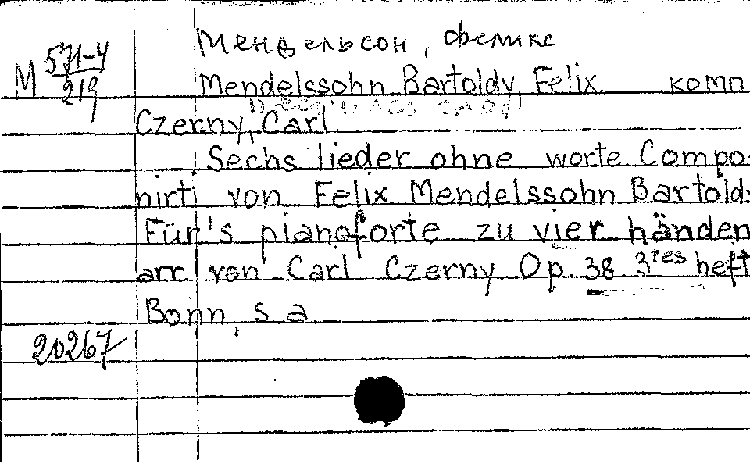 Мендельсон, Феликс
М 571-4
219
Mendelssohn Bartoldy Felix комп
Czerny, Carl
Sechs lieder ohne worte Compo-
nirt von Felix Mendelssohn Bartold:
Für's pianoforte zu vier händen
arr von Carl Czerny Op. 38 3tes heft
Bonn, s a
20267